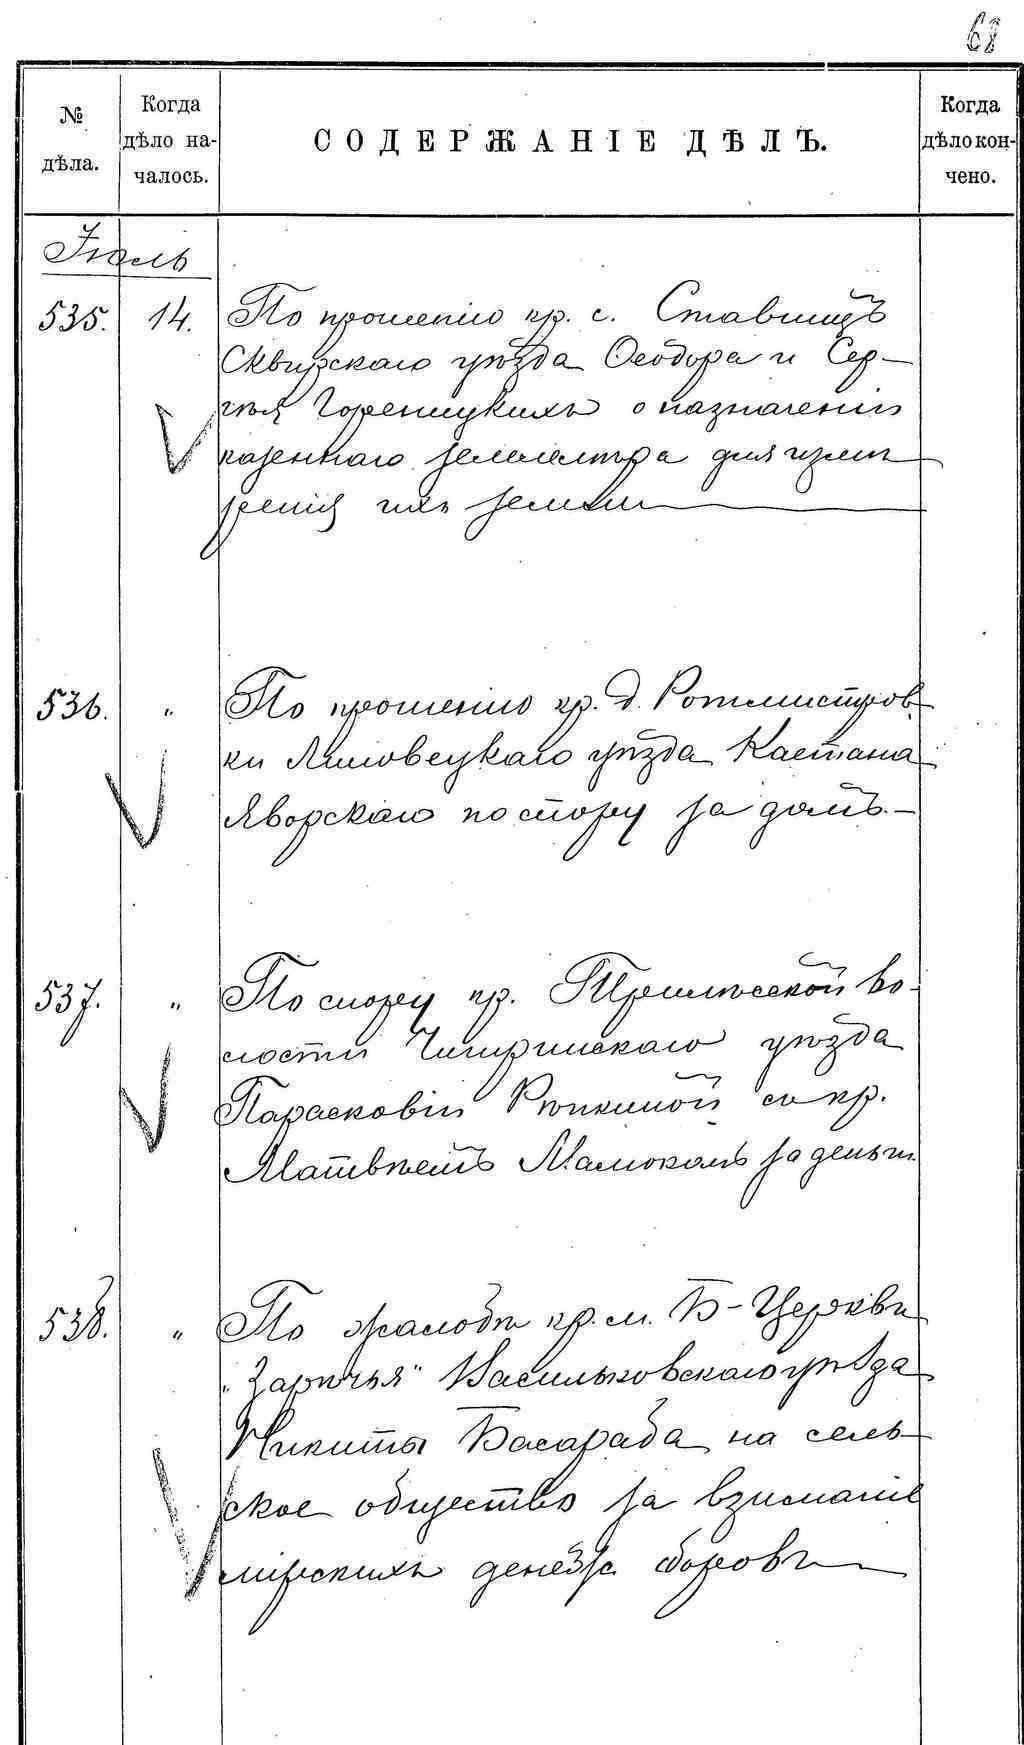 68
№ дѣла.
Когда дѣло на-чалось.
СОДЕРЖАНІЕ ДѢЛЪ.
Когда дѣло кон-чено.
Іюль
535. 14. По прошенію кр. с. Ставищъ
Сквирскаго уѣзда Ѳеодора и Сер-
гѣя Гореницкихъ о назначеніи
казеннаго землемѣра для измѣ
ренія ихъ земли
536. " По прошенію кр. д. Ротмистров
ки Липовецкаго уѣзда Каетана
Яворскаго по спору за домъ.-
537. " По спору кр. Трилѣсской во-
лости Чигиринскаго уѣзда
Парасковіи Рѣпкиной съ кр.
Матвѣемъ за деньги.
538. " По жалобѣ кр. м. Б-Церкви
"Зарѣчья" Васильковскаго уѣзда
Никиты Басараба на сель-
ское общество за взиманіе
мірскихъ денеж. сборовъ